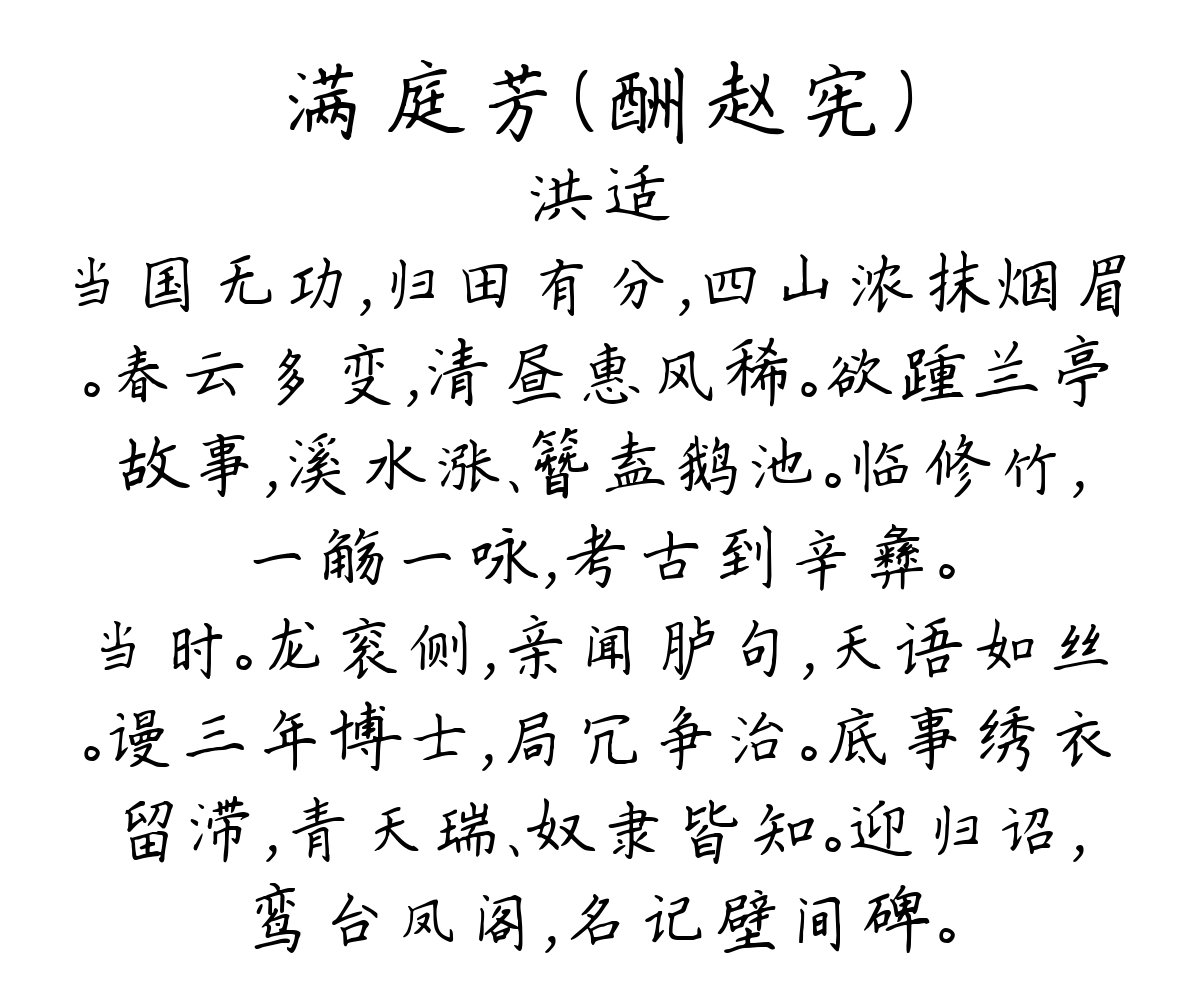 满庭芳(酬赵宪)
洪适
当国无功,归田有分,四山浓抹烟眉
。春云多变,清昼惠风稀。欲踵兰亭
故事,溪水涨、簪盍鹅池。临修竹,
一觞一咏,考古到辛彝。
当时。龙衮侧,亲闻胪句,天语如丝
。谩三年博士,局冗争治。底事绣衣
留滞,青天瑞、奴隶皆知。迎归诏,
鸾台凤阁,名记壁间碑。